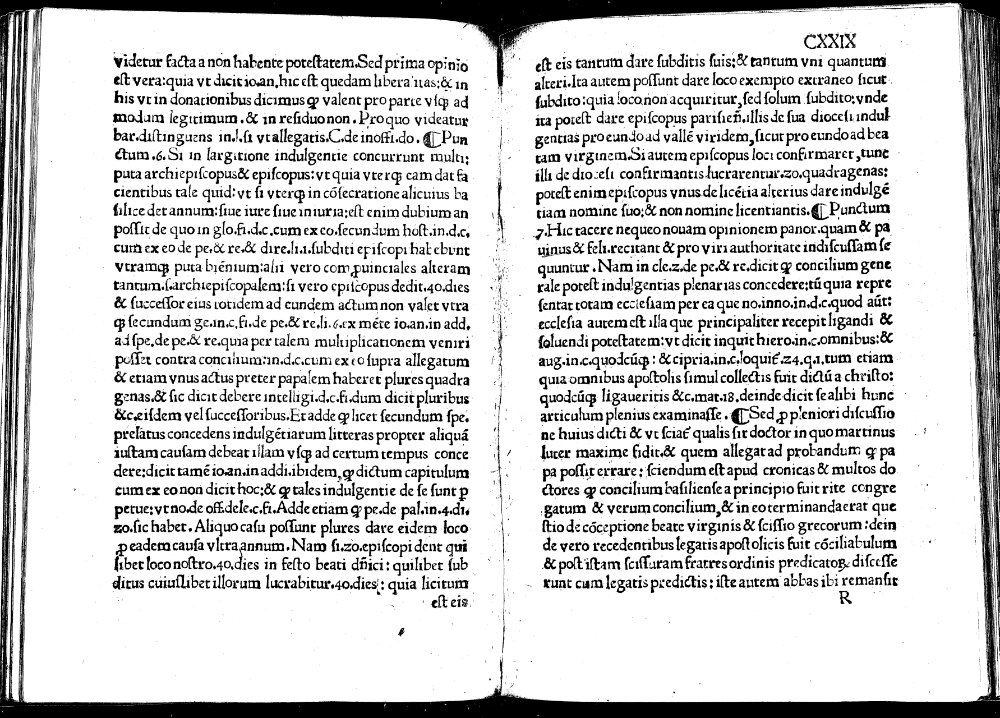 videtur facta a non habente potestatem. Sed prima opinio
est vera: quia vt dicit io.an, hic est quedam libera itas: & in
his vt in donationibus dicimus qꝫ valent pro parte vsqꝫ ad
modum legitimum. & in residuo non. Pro quo videatur
bar. distinguens in.l. si vt allegatis. C. de inoffi. do. ¶ Pun
ctum .6. Si in largitione indulgentie concurrunt multi:
puta archiepiscopus & episcopus: vt quia vterqꝫ eam dat fa
cientibus tale quid: vt si vterqꝫ in cōsecratione alicuius ba
silice det annum: siue iure siue iniuria: est enim dubium an
possit de quo in glo. fi. d.c. cum ex eo. secundum host. in.d.c.
cum ex eo de pe. & re. & dire. li.1. subditi episcopi habebunt
vtramqꝫ puta biēnium: alii vero comprouinciales alteram
tantum. s. archiepiscopalem: si vero episcopus dedit .40. dies
& successor eius totidem ad eundem actum non valet vtra
qꝫ secundum ge. in. c. fi. de pe. & re. li. 6. ex mēte io. an. in add.
ad spe. de pe. & re. quia per talem multiplicationem veniri
posset contra concilium: in. d. c. cum ex eo supra allegatum
& etiam vnus actus preter papalem haberet plures quadra
genas. & sic dicit debere intelligi. d. c. fi. dum dicit pluribus
&c. eisdem vel successoribus. Et adde qꝫ licet secundum spe.
prelatus concedens indulgētiarum litteras propter aliquā
iustam causam debeat illam vsqꝫ ad certum tempus conce
dere: dicit tamē io. an. in addi. ibidem, qꝫ dictum capitulum
cum ex eo non dicit hoc: & qꝫ tales indulgentie de se sunt ꝑ
petue: vt no. de off. dele. c. fi. Adde etiam qꝫ pe. de pal. in. 4. di.
20. sic habet. Aliquo casu possunt plures dare eidem loco
ꝓ eadem causa vltra annum. Nam si. 20. episcopi dent qui
libet loco nostro. 40. dies in festo beati dñici: quilibet sub
ditus cuiuslibet illorum lucrabitur. 40. dies: quia licitum
est eis
CXXIX
est eis tantum dare subditis suis: & tantum vni quantum
alteri. Ita autem possunt dare loco exempto extraneo sicut
subdito: quia loco, non acquiritur, sed solum subdito: vnde
ita potest dare episcopus parisieñ. illis de sua diocesi indul
gentias pro eundo ad vallē viridem, sicut pro eundo ad bea
tam virginem. Si autem episcopus loci confirmaret, tunc
illi de diocesi confirmantis lucrarentur. 20. quadragenas:
potest enim episcopus vnus de licētia alterius dare indulgē
tiam nomine suo: & non nomine licentiantis. ¶ Punctum
7. Hic tacere nequeo nouam opinionem panor. quam & pa
uinus & feli. recitant & pro viri authoritate indiscussam se
quuntur. Nam in cle. 2. de pe. & re. dicit qꝫ concilium gene
rale potest indulgentias plenarias concedere: tū quia repre
sentat totam ecclesiam per ea que no. inno. in. d. c. quod aūt:
ecclesia autem est illa que principaliter recepit ligandi &
soluendi potestatem: vt dicit inquit hiero. in c. omnibus: &
aug. in. c. quodcūqꝫ: & cipria. in. c. loquiť. 24. q. 1. tum etiam
quia omnibus apostolis simul collectis fuit dictū a christo:
quodcūqꝫ ligaueritis &c. mat. 18. deinde dicit se alibi hunc
articulum plenius examinasse. ¶ Sed ꝓ pleniori discussio
ne huius dicti & vt sciať qualis sit doctor in quo martinus
luter maxime fidit. & quem allegat ad probandum qꝫ pa
pa possit errare: sciendum est apud cronicas & multos do
ctores qꝫ concilium basiliense a principio fuit rite congre
gatum & verum concilium, & in eo terminanda erat que
stio de cōceptione beate virginis & scissio grecorum: dein
de vero recedentibus legatis apostolicis fuit cōciliabulum
& post istam scissuram fratres ordinis predicatoꝝ discesse
runt cum legatis predictis: iste autem abbas ibi remansit
R